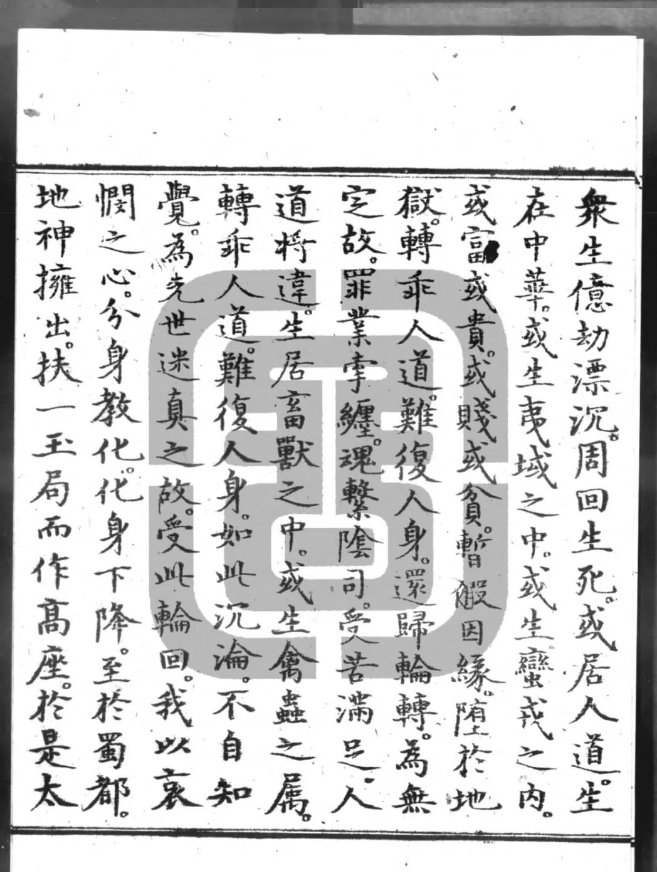 衆生億劫漂沉。周回生死。或居人道。生
在中華。或生夷域之中。或生蠻戎之內。
或富或貴。或賤或貧。暫假因緣。墮於地
獄。轉乖人道。難復人身。還歸輪轉。為無
定故。罪業牽纏。魂繫陰司。受苦滿足。人
道將違。生居畜獸之中。或生禽蟲之属。
轉乖人道。難復人身。如此沉淪。不自知
覺。為先世迷真之故。受此輪回。我以哀
憫之心。分身教化。化身下降。至於蜀都。
地神擁出。扶一玉局而作高座。於是太